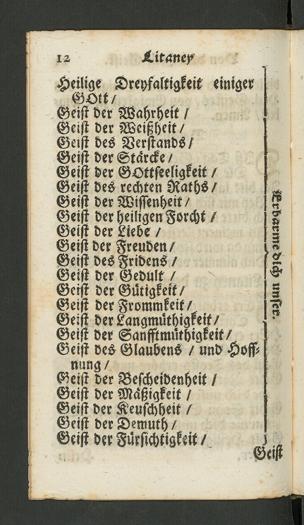 12 Litaney
Heilige Dreyfaltigkeit einiger
GOtt /
Geist der Wahrheit /
Geist der Weißheit /
Geist des Verstands /
Geist der Stärcke /
Geist der GOttseeligkeit /
Geist des rechten Raths /
Geist der Wissenheit /
Geist der heiligen Forcht /
Geist der Liebe /
Geist der Freuden /
Geist des Fridens /
Geist der Gedult /
Geist der Gütigkeit /
Geist der Frommkeit /
Geist der Langmüthigkeit /
Geist der Sanfftmüthigkeit /
Geist des Glaubens / und Hoff-
nung /
Geist der Bescheidenheit /
Geist der Mäßigkeit /
Geist der Keuschheit /
Geist der Demuth /
Geist der Fürsichtigkeit /
Erbarme dich unser.
Geist